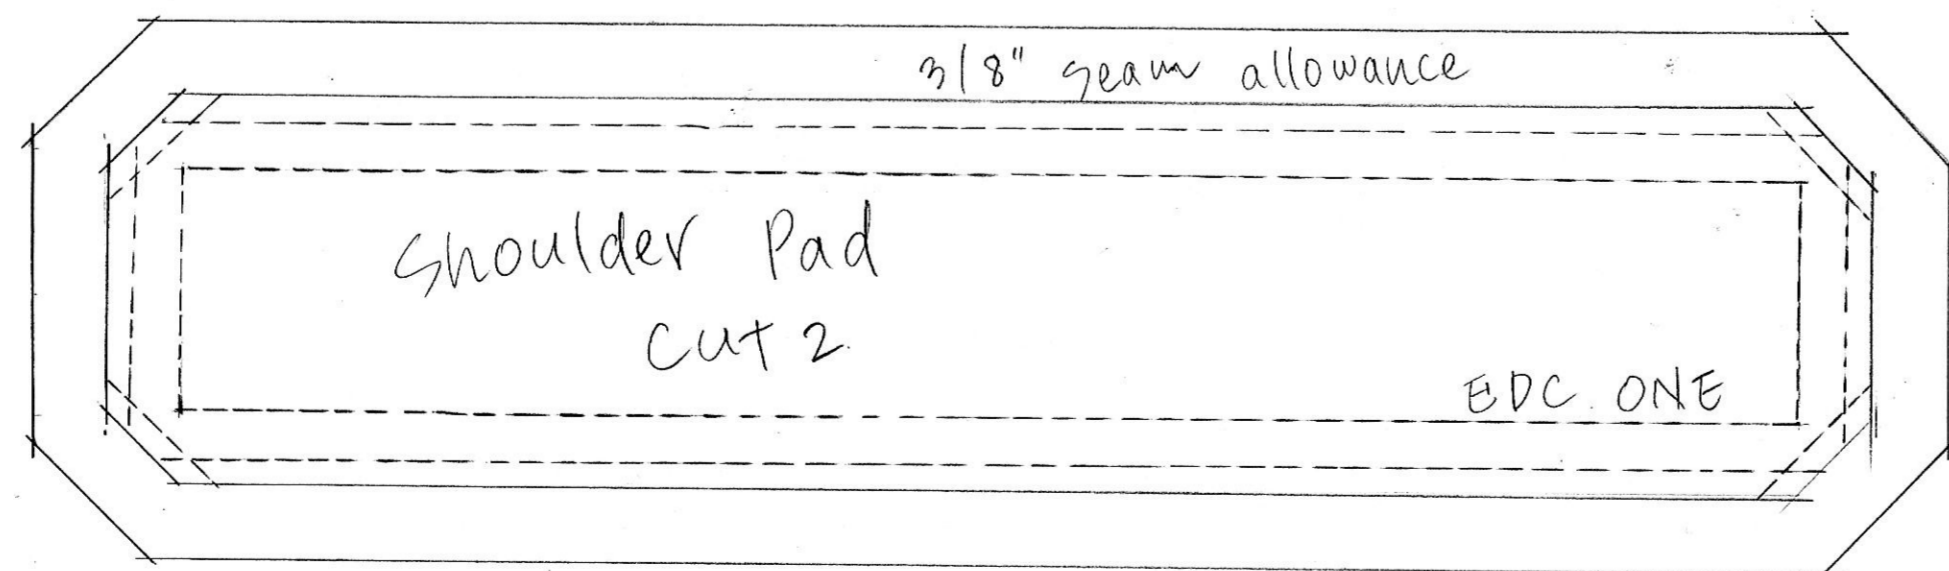 3/8" seam allowance
Shoulder Pad
Cut 2
EDC ONE